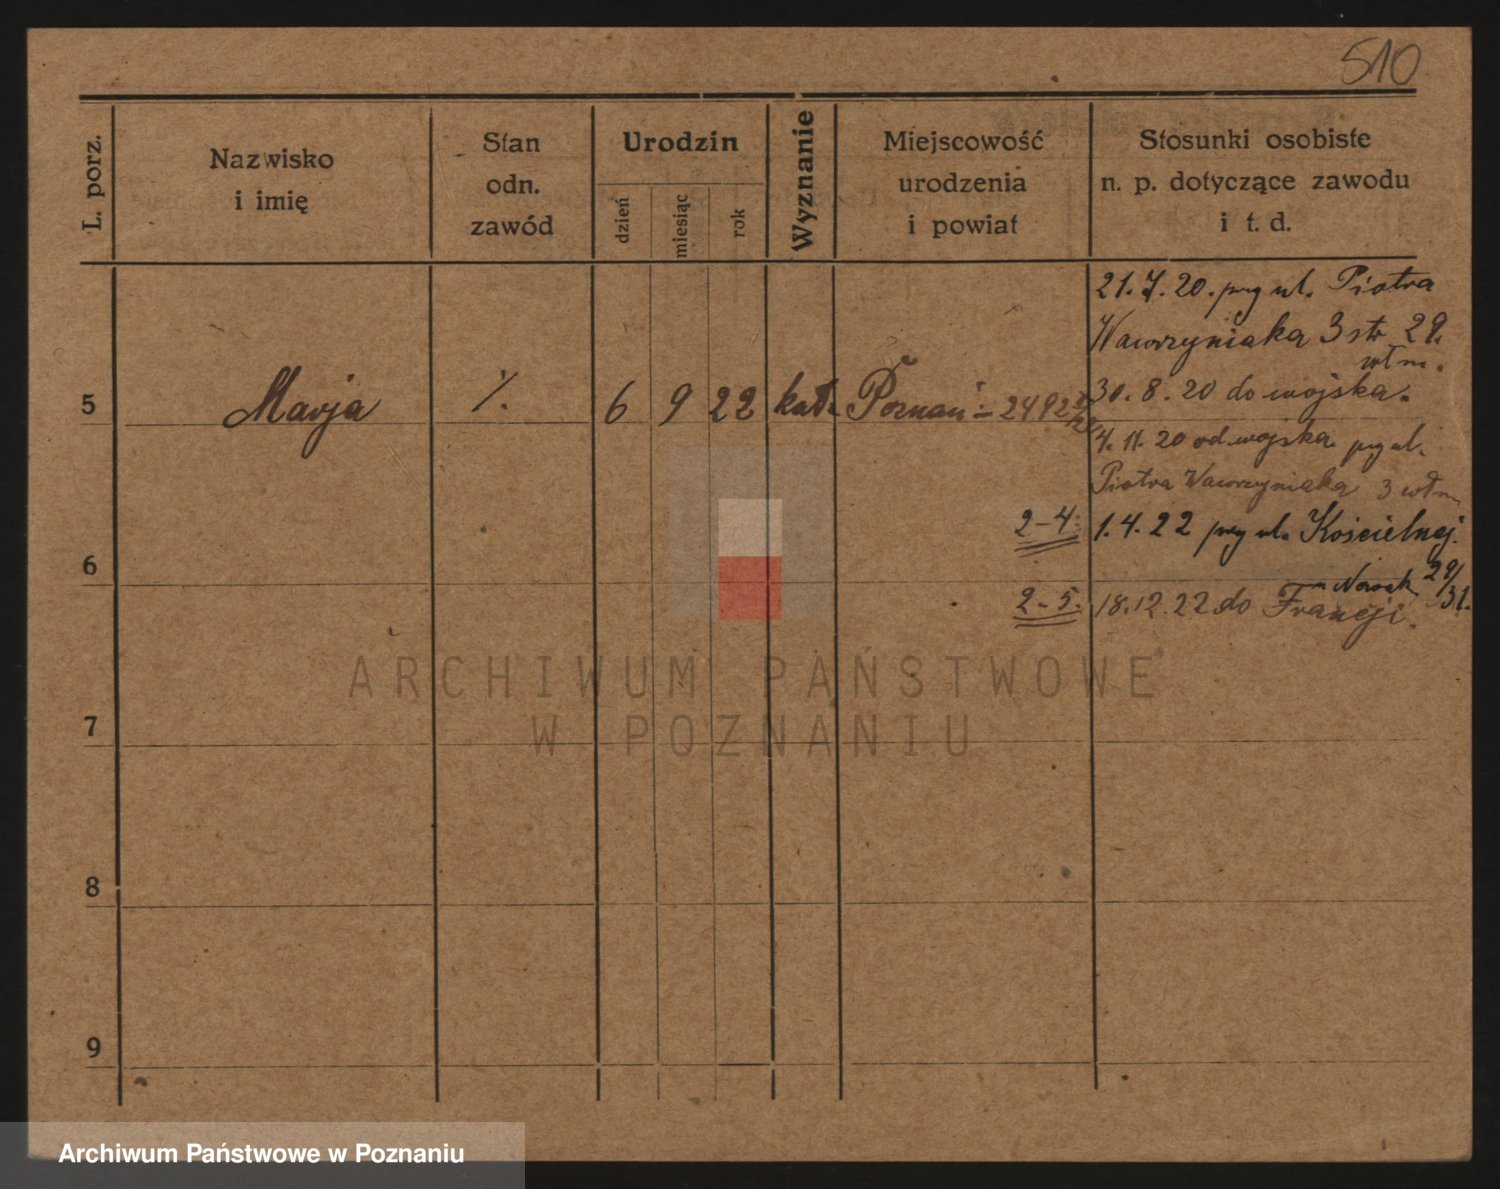 510
L. porz.
Nazwisko
i imię
Stan
odn.
zawód
Urodzin
dzień
miesiąc
rok
Wyznanie
Miejscowość
urodzenia
i powiat
Stosunki osobiste
n. p. dotyczące zawodu
i t. d.
21.7.20. przy ul. Piotra
Wawrzyniaka 3 str 29.
włm.
5 Marja ./. 6 9 22 kat. Poznań
30.8.20 do wojska.
4.11.20 od wojska przy ul.
Piotra Wawrzyniaka 3 włm
2-4. 1.4.22 przy ul. Kościelnej.
29/31.
Nowak
6
2-5. 18.12.22 do Francji.
7
8
9
ARCHIWUM PAŃSTWOWE
W POZNANIU
Archiwum Państwowe w Poznaniu